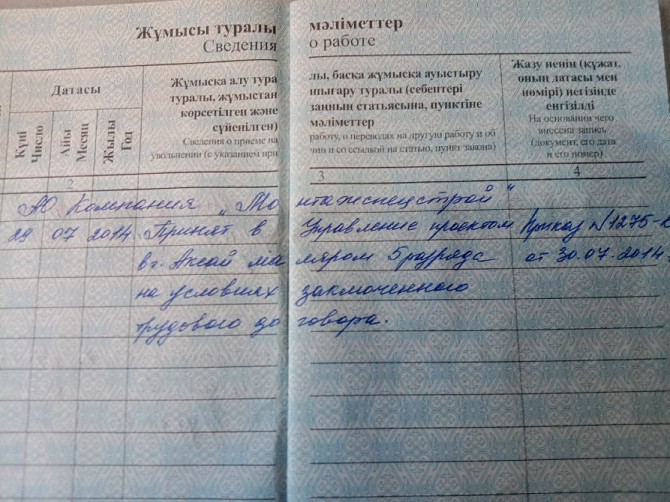 Жұмысы туралы мәліметтер
Сведения о работе
Датасы
Күні
Число
Айы
Месяц
Жылы
Год
Жұмысқа алу тура
туралы, жұмыстан
көрсетілген және
сүйенілген)
Сведения о приеме на
увольнении (с указанием при
лы, басқа жұмысқа ауыстыру
шығару туралы (себептері
заңның статьясына, пунктіне
мәліметтер
работу, о переводах на другую работу и об
чин и со ссылкой на статью, пункт закона)
Жазу ненің (құжат,
оның датасы мен
нөмірі) негізінде
енгізілді
На основании чего
внесена запись
(документ, его дата
и его номер)
2
3
4
АО Компания „Монтажспецстрой“
29 07 2014 Принят в Управление проектом Приказ N1275-
в г. Аксай маляром 5 разряда от 30.07.2014.
на условиях заключенного
трудового договора.